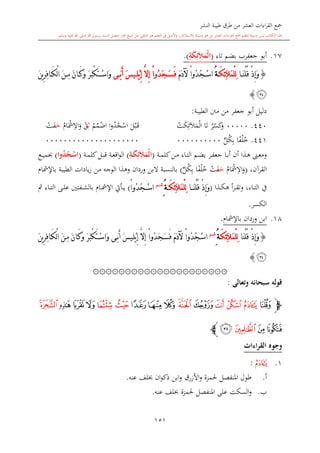 جمع القراءات العشر من طرق طيبة النشر
١٧. أبو جعفر بضم تاء (الْمَلَائِكَةُ).
﴿ وَإِذْ قُلْنَا لِلْمَلَائِكَةُ اسْجُدُوا لِآدَمَ فَسَجَدُوا إِلَّا إِبْلِيسَ أَبَى وَاسْتَكْبَرَ وَكَانَ مِنَ الْكَافِرِينَ
﴿٣٤﴾
دليل أبو جعفر من متن الطيبة:
٤٤٠. ٠٠٠٠٠ وَكَسْرُ تَا الْمَلَائِكَتْ قَبْلَ اسْجُدُوا اضْمُمْ ثِقْ وَالْإِشْمَامُ خَفَتْ
٤٤١. خُلْفًا بِكُلٍّ ٠٠٠٠٠٠٠٠٠٠
ومعنى هذا أن أبا جعفر يضم التاء من كلمة (الْمَلَائِكَةُ) الواقعة قبل كلمة (اسْجُدُوا) بجميع
القرآن، (وَالْإِشْمَامُ خَفَتْ خُلْفًا بِكُلٍّ) بالنسبة لابن وردان وهذا الوجه من زيادات الطيبة بالإشمام
في التاء، وتقرأ هكذا (وَإِذْ قُلْنَا لِلْمَلَائِكَةُ اسْجُدُوا) يأتي الإشمام بالشفتين على التاء ثم
الكسر.
١٨. ابن وردان بالإشمام.
﴿ وَإِذْ قُلْنَا لِلْمَلَائِكَةُ اسْجُدُوا لِآدَمَ فَسَجَدُوا إِلَّا إِبْلِيسَ أَبَى وَاسْتَكْبَرَ وَكَانَ مِنَ الْكَافِرِينَ
﴿٣٤﴾
قوله سبحانه وتعالى :
﴿ وَقُلْنَا يَا آدَمُ اسْكُنْ أَنتَ وَزَوْجُكَ الْجَنَّةَ وَكُلَا مِنْهَا رَغَدًا حَيْثُ شِئْتُمَا وَلَا تَقْرَبَا هَذِهِ الشَّجَرَةَ
فَتَكُونَا مِنَ الظَّالِمِينَ ﴿٣٥﴾ ﴾
وجوه القراءات
١. يَا آدَمُ :
أ. طول المنفصل لحمزة والأزرق وابن ذكوان بخلف عنه.
ب. والسكت على المنفصل لحمزة بخلف عنه.
١٥١